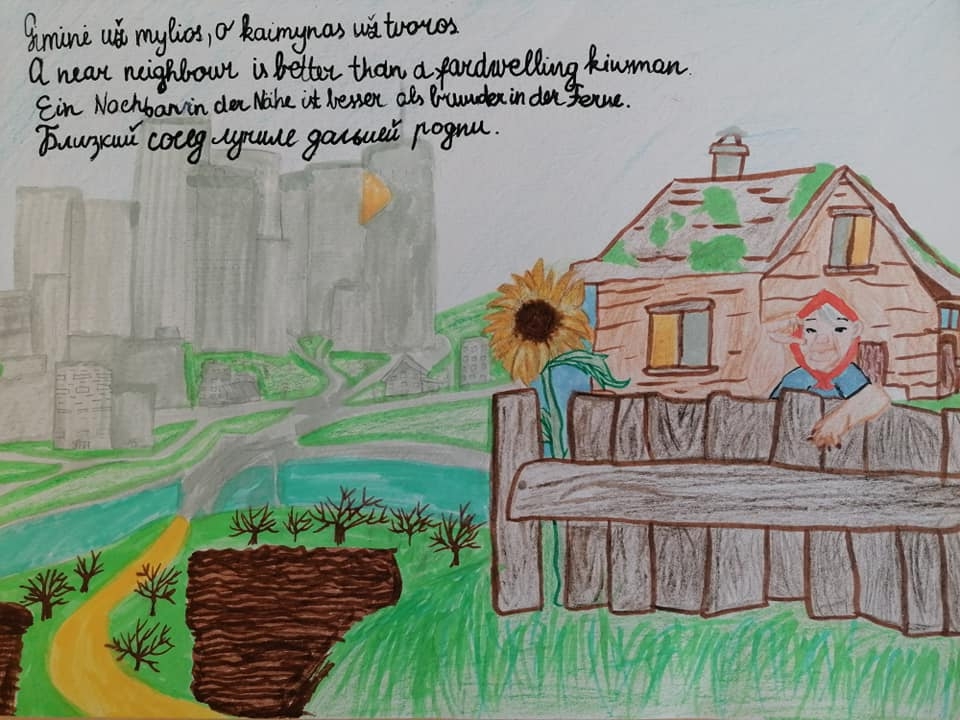 Giminė už mylios, o kaimynas už tvoros
A near neighbour is better than a fardwelling kinsman.
Ein Nachbar in der Nähe ist besser als bruder in der Ferne.
Близкий сосед лучше дальней родни.